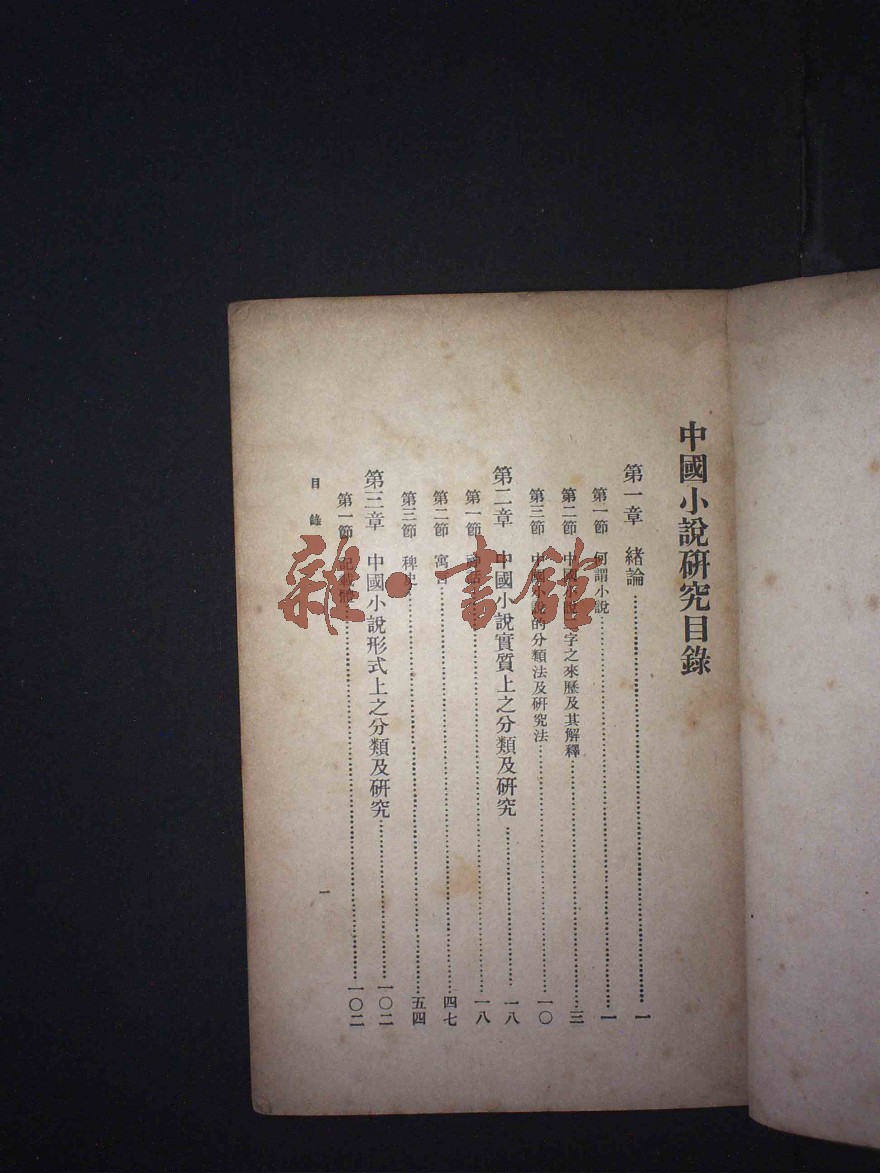 中國小說研究目錄
第一章 緒論……一
第一節 何謂小說……一
第二節 中國小說二字之來歷及其解釋……三
第三節 中國小說的分類法及研究法……一〇
第二章 中國小說實質上之分類及研究……一八
第一節 神話……一八
第二節 寓言……四七
第三節 稗史……五四
第三章 中國小說形式上之分類及研究……一〇二
第一節 記載體……一〇二
目錄
一
雜·書館